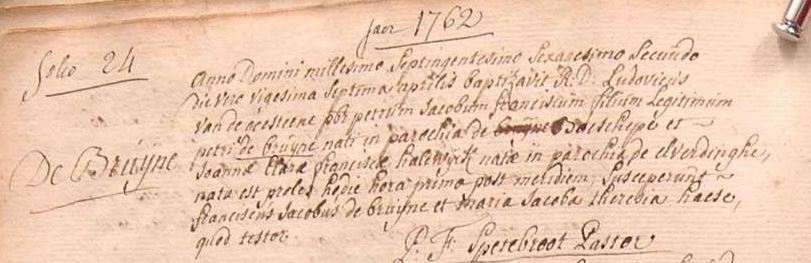 Jaer 1762
folio 24
Anno Domini millesimo Septingentesimo Sexagesimo Secundo
Die vero vigesima Septima aprilis baptizavit R. D. Ludovicus
van de acesteene pbr petrum Jacobum franciscum filium Legitimum
petri de bruyne nati in parochia de Baeschepe et
De Bruÿne
Joannæ Claræ franciscæ halewÿck natæ in parochia de elverdinghe,
nata est proles hedie hora prima post meridiem, Susceperunt
franciscus Jacobus de bruÿne et maria Jacoba theresia haese,
quod testor
P. F. Spetebroot Pastor